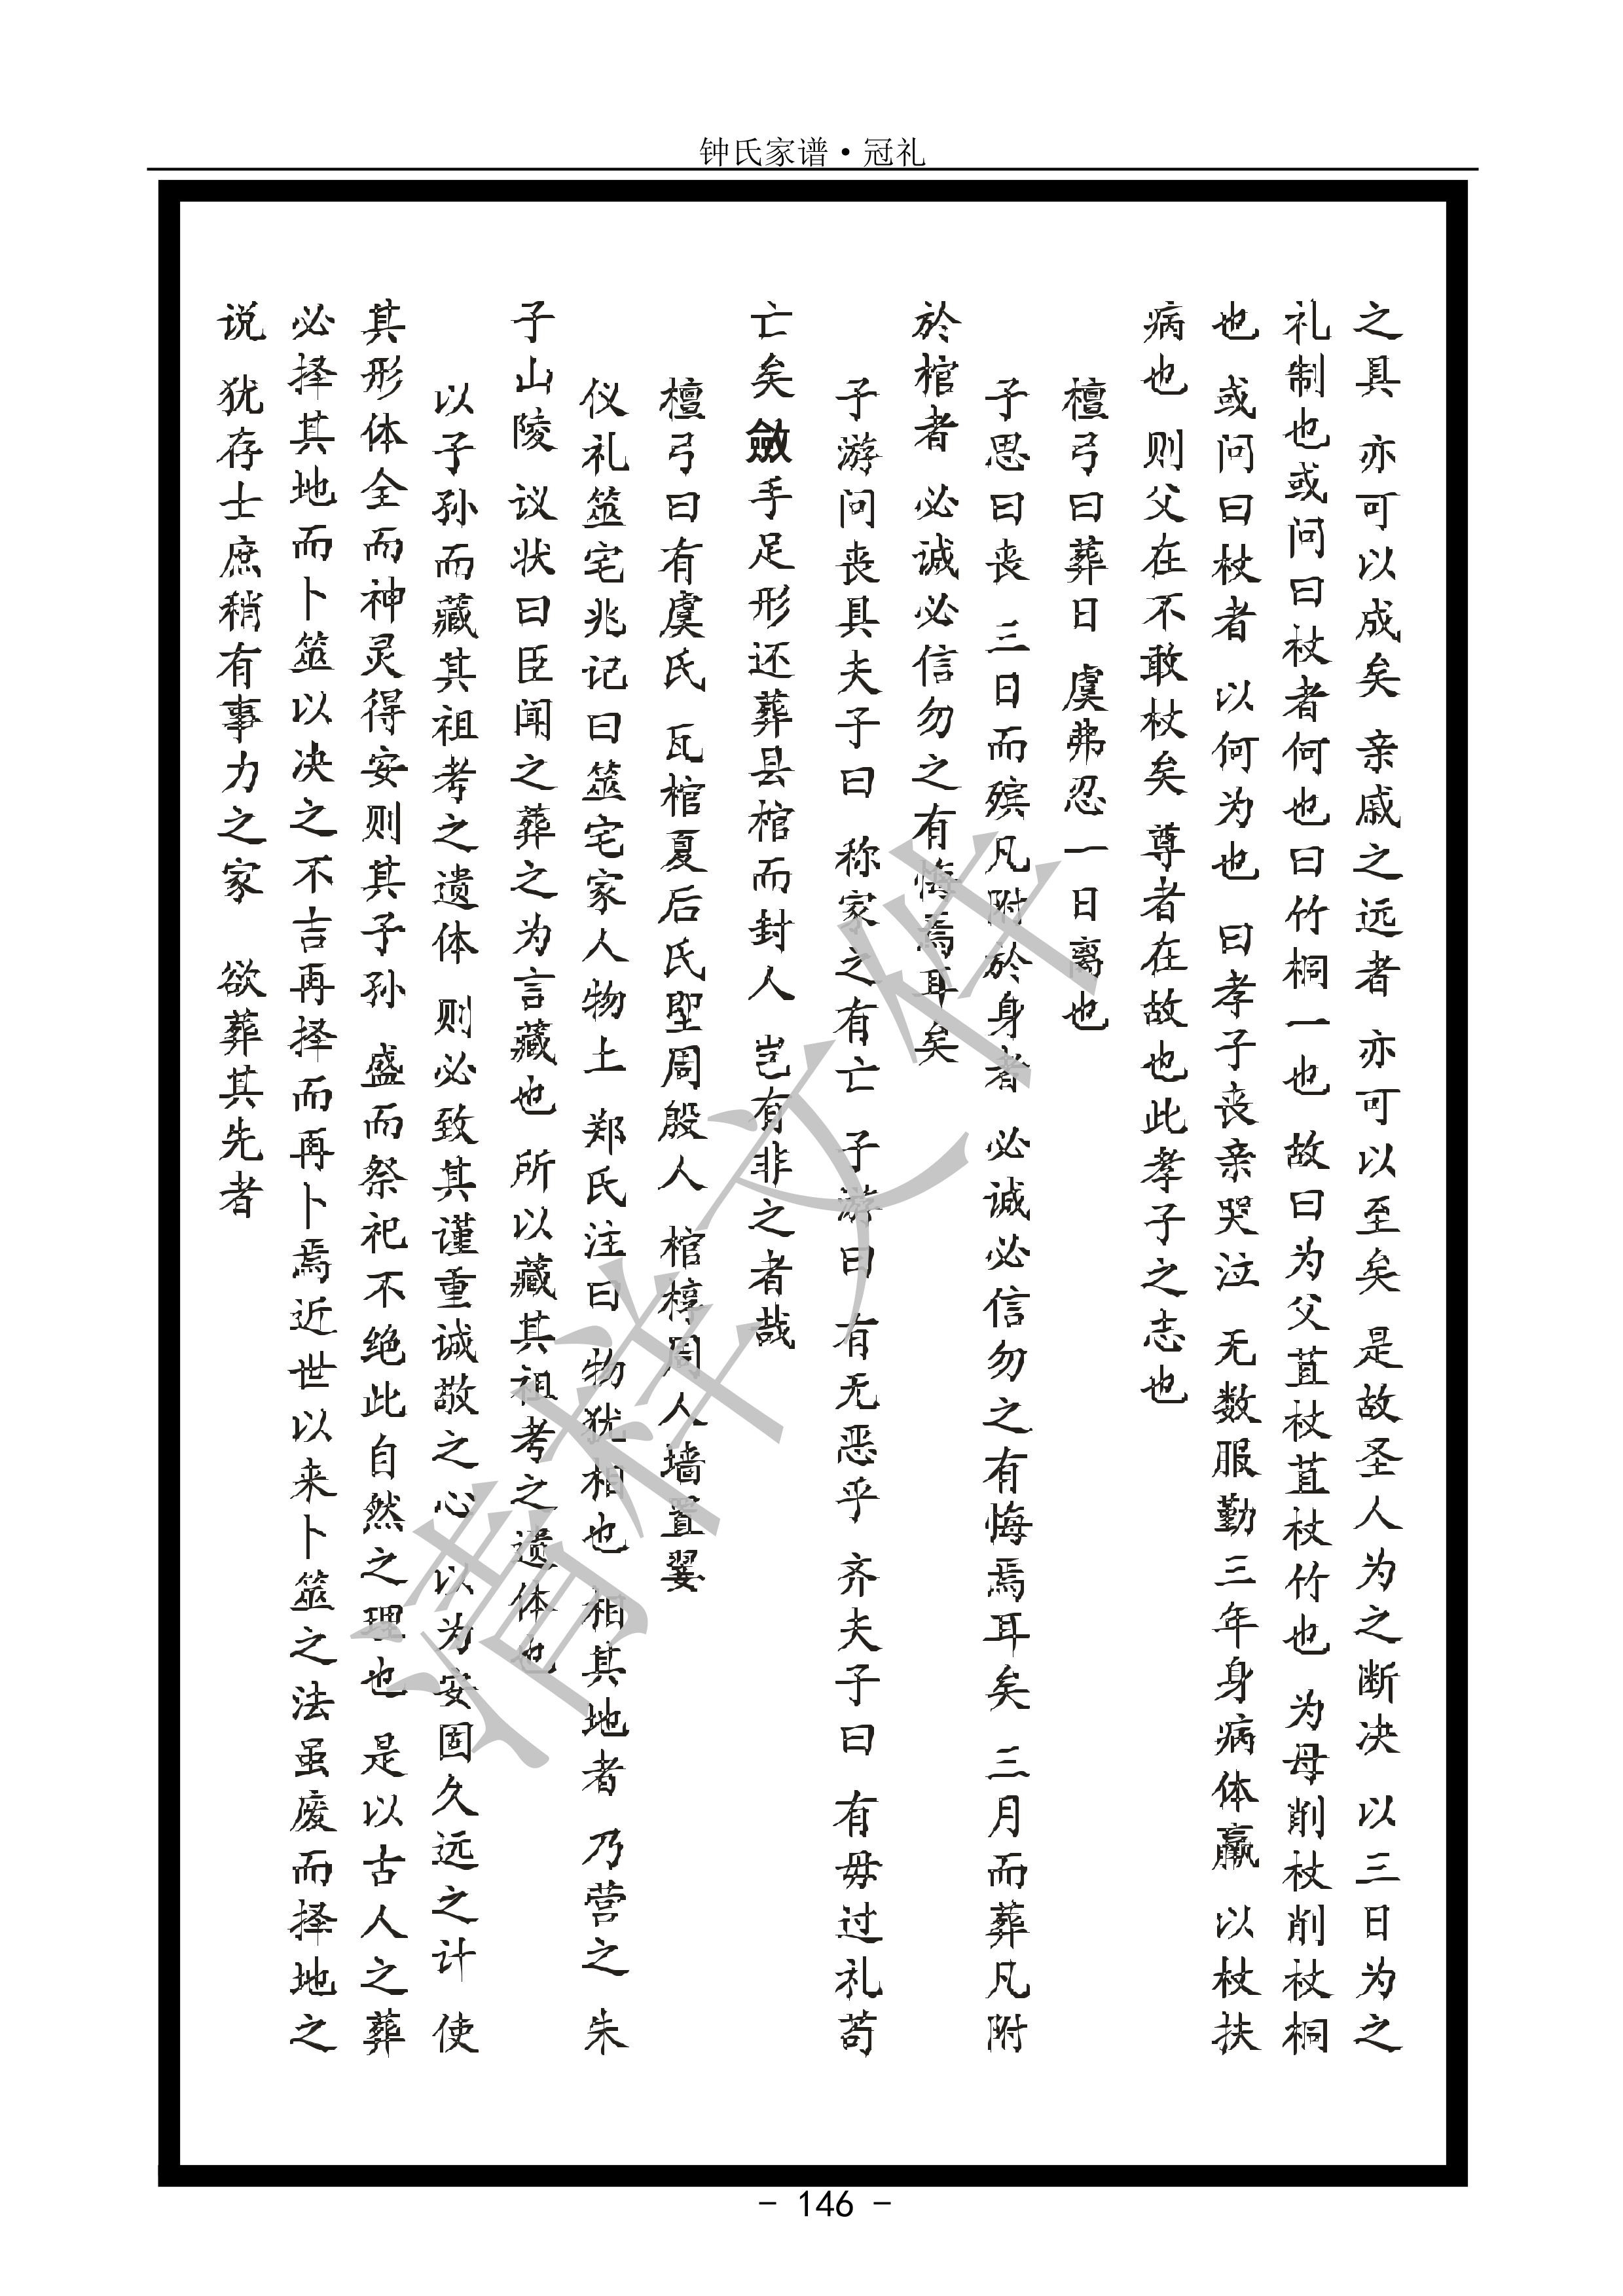 钟氏家谱·冠礼
之具 亦可以成矣 亲戚之远者 亦可以至矣 是故圣人为之断决 以三日为之
礼制也或问曰杖者何也曰竹桐一也 故曰为父苴杖苴杖竹也 为母削杖削杖桐
也 或问曰杖者 以何为也 曰孝子丧亲哭泣 无数服勤三年身病体羸 以杖扶
病也 则父在不敢杖矣 尊者在故也此孝子之志也
檀弓曰葬日 虞弗忍一日离也
子思曰丧 三日而殡凡附於身者 必诚必信勿之有悔焉耳矣 三月而葬凡附
於棺者 必诚必信勿之有悔焉耳矣
子游问丧具夫子曰 称家之有亡 子游曰 有无恶乎 齐夫子曰 有毋过礼苟
亡矣斂手足形还葬县棺而封人 岂有非之者哉
檀弓曰有虞氏 瓦棺夏后氏堲周殷人 棺椁周人墙置翣
仪礼筮宅兆记曰筮宅家人物土 郑氏注曰 物犹相也 相其地者 乃营之 朱
子山陵 议状曰臣闻之葬之为言藏也 所以藏其祖考之遗体也
以子孙而藏其祖考之遗体 则必致其谨重诚敬之心 以为安固久远之计 使
其形体全而神灵得安则其子孙 盛而祭祀不绝此自然之理也 是以古人之葬
必择其地而卜筮以决之不吉再择而再卜焉近世以来卜筮之法虽废而择地之
说 犹存士庶稍有事力之家 欲葬其先者
- 146 -
清样文件